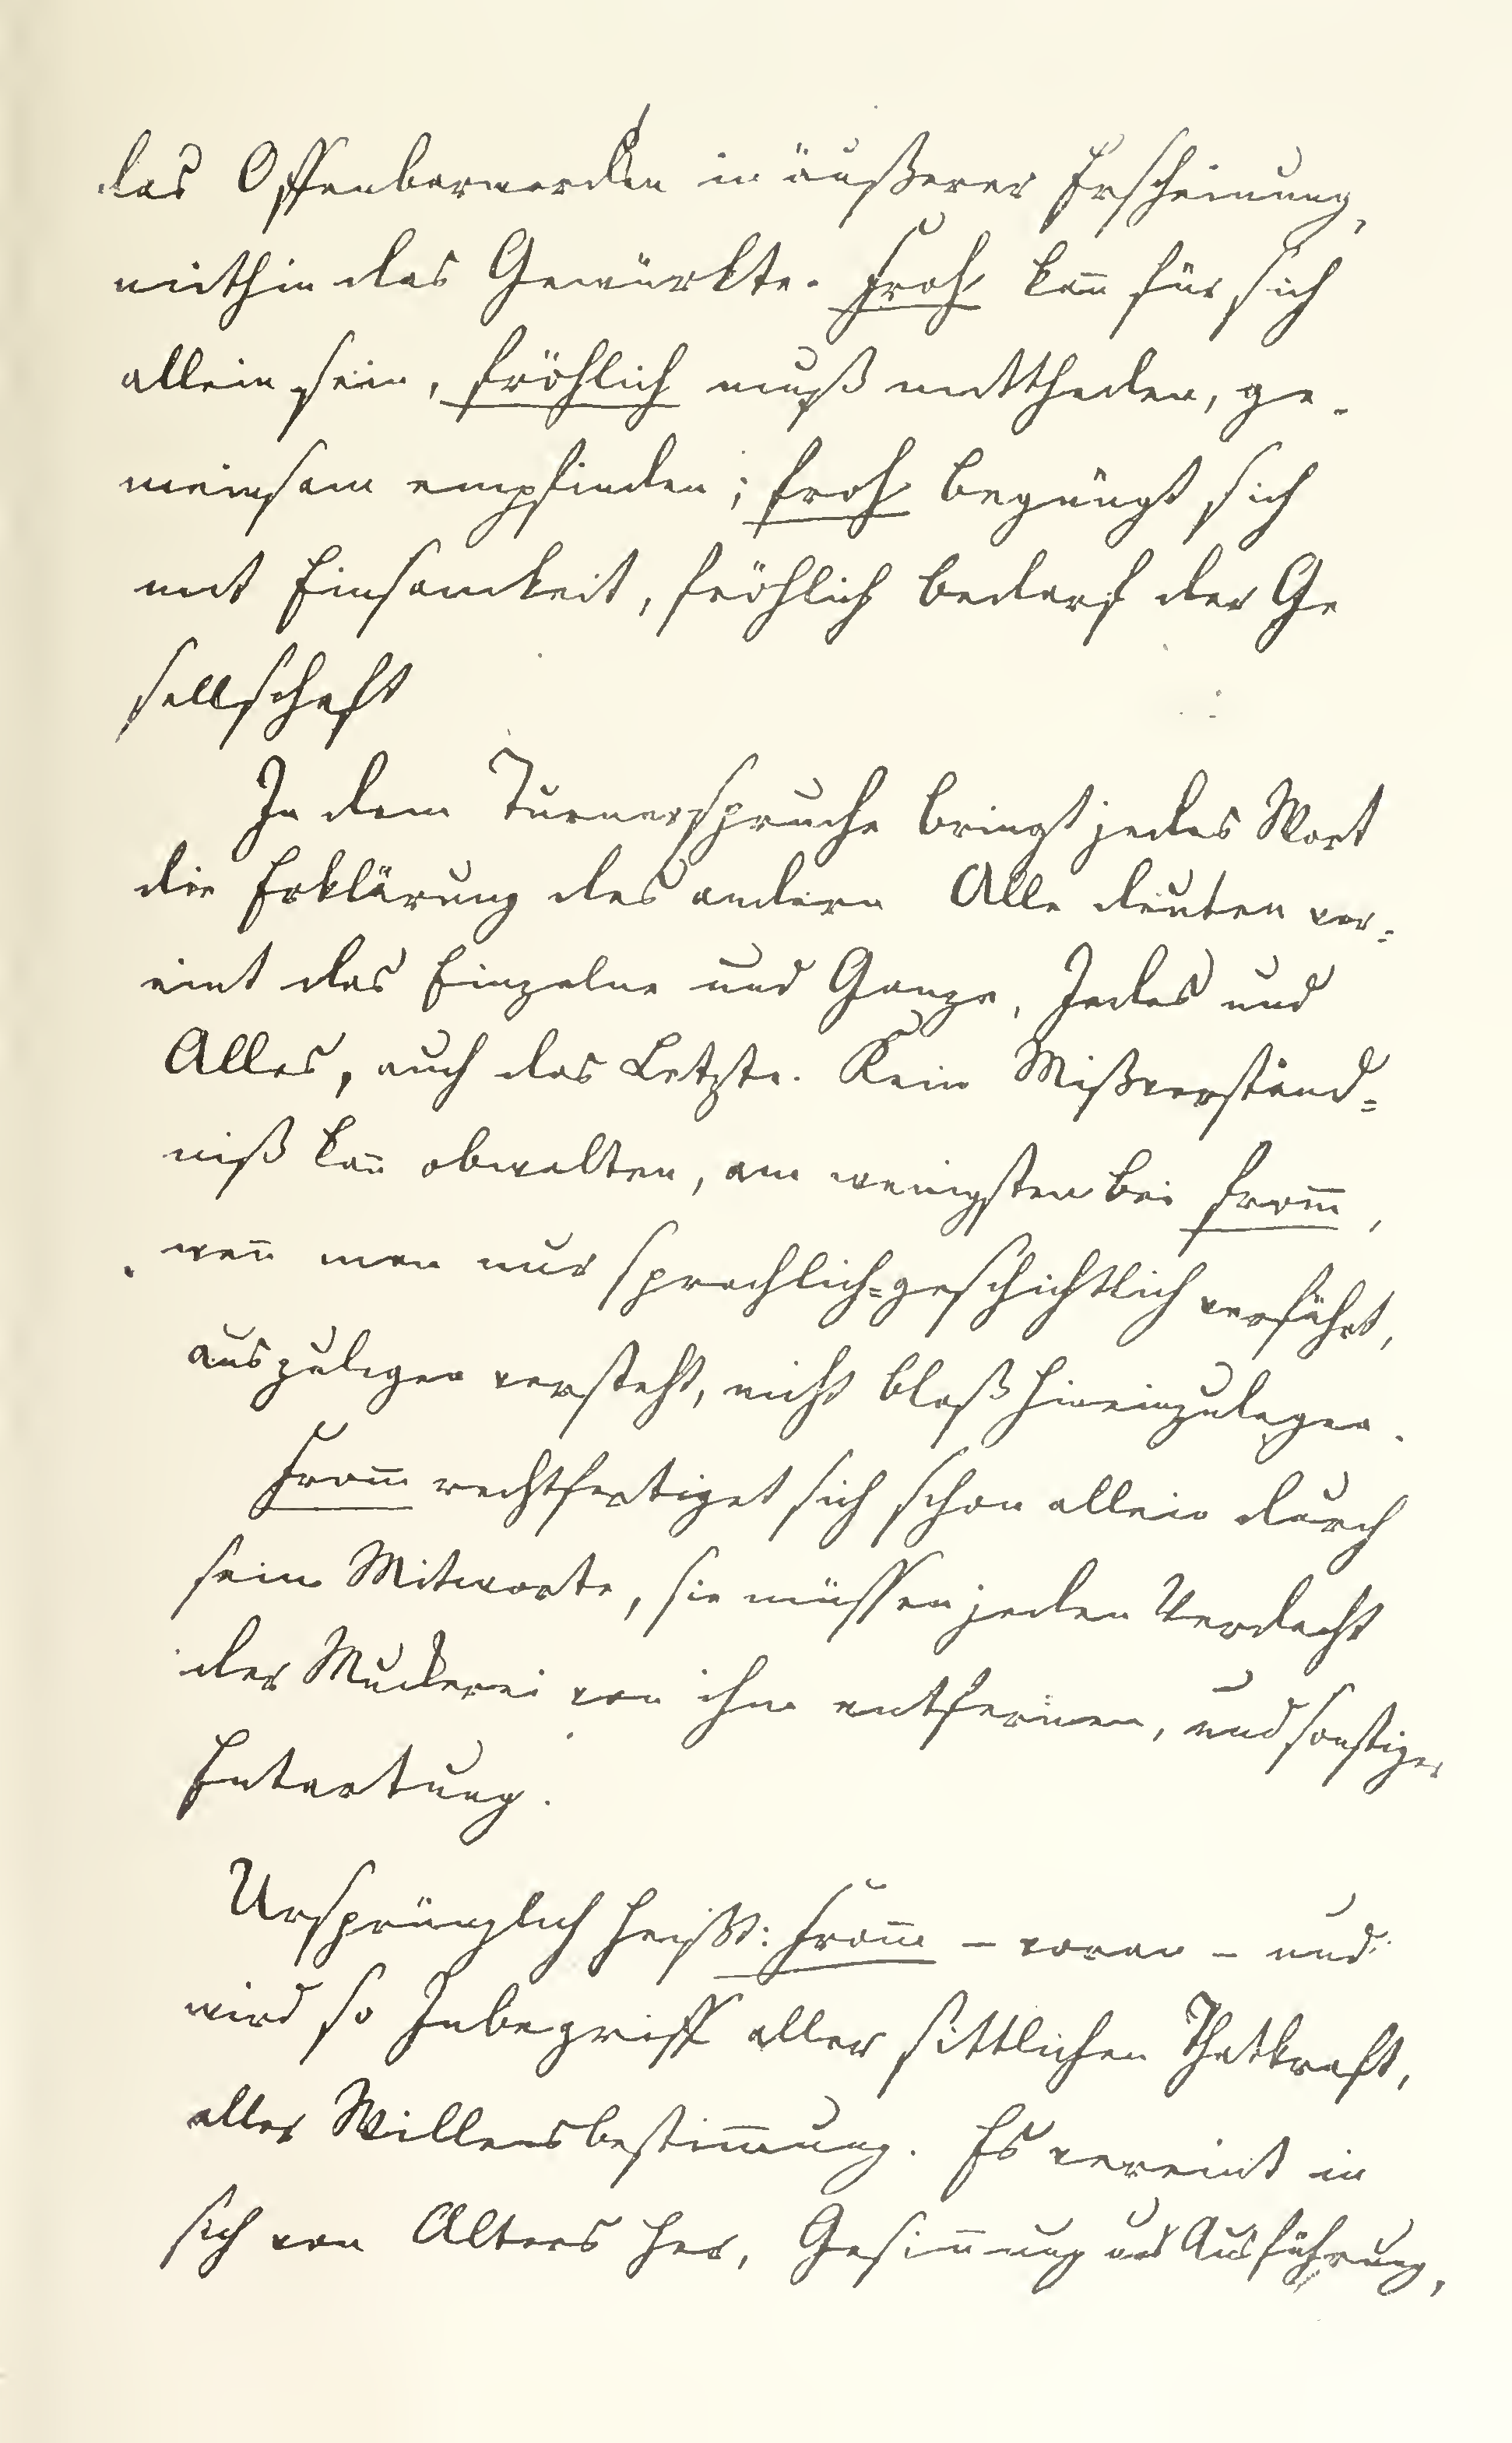 das Offenbarwerden in äußerer Erscheinung,
mithin das Gewürkte. Froh kan̄ für sich
allein sein, fröhlich muß mittheilen, ge-
meinsam empfinden; froh begnügt sich
mit Einsamkeit, fröhlich bedarf der Ge
sellschaft
In dem Turnerspruche bringt jedes Wort
die Erklärung des andern Alle deuten ver=
eint das Einzelne und Ganze, Jedes und
Alles, auch das Letzte. Kein Mißverständ=
niß kan̄ obwalten, am wenigsten bei from̄,
wen̄ man nur sprachlich=geschichtlich verfährt,
auszulegen versteht, nicht bloß hineinzulegen.
From̄ rechtfertiget sich schon allein durch
seine Mitworte, sie müssen jeden Verdacht
der Muckerei von ihm entfernen, und sonstiger
Entartung.
Ursprünglich heißt: From̄ – voran – und
wird so Inbegriff aller sittlichen Thatkraft,
aller Willensbestim̄ung. Es vereint in
sich von Alters her, Gesin̄nung und Ausführung,